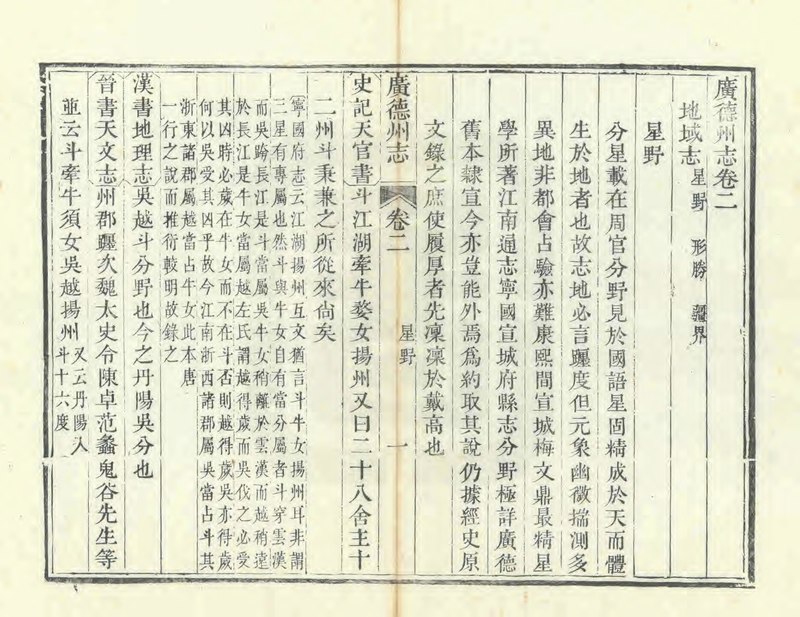 廣德州志卷二
地域志 星野 形勝 疆界
星野
分星載在周官分野見於國語星固精成於天而體
生於地者也故志地必言躔度但元象幽微揣測多
異地非都會占驗亦難康熙間宣城梅文鼎最精星
學所著江南通志寧國宣城府縣志分野極詳廣德
舊本隸宣今亦豈能外焉爲約取其說仍據經史原
文錄之庶使履厚者先凜凜於戴高也
廣德州志 卷二 星野 一
史記天官書斗江湖牽牛婺女揚州又曰二十八舍主十
二州斗秉兼之所從來尙矣
寧國府志云江湖揚州互文猶言斗牛女揚州耳非謂
三星有專屬也然斗與牛女自有當分屬者斗穿雲漢
而吳跨長江是斗當屬吳牛女稍離於雲漢而越稍遠
於長江是牛女當屬越左氏謂越得歲而吳伐之必受
其凶時必歲在牛女而不在斗否則越得歲吳亦得歲
何以吳受其凶乎故今江南浙西諸郡屬吳當占斗其
浙東諸郡屬越當占牛女此本唐
一行之說而推衍較明故錄之
漢書地理志吳越斗分野也今之丹陽吳分也
晉書天文志州郡躔次魏太史令陳卓范蠡鬼谷先生等
並云斗牽牛須女吳越揚州又云丹陽入
斗十六度